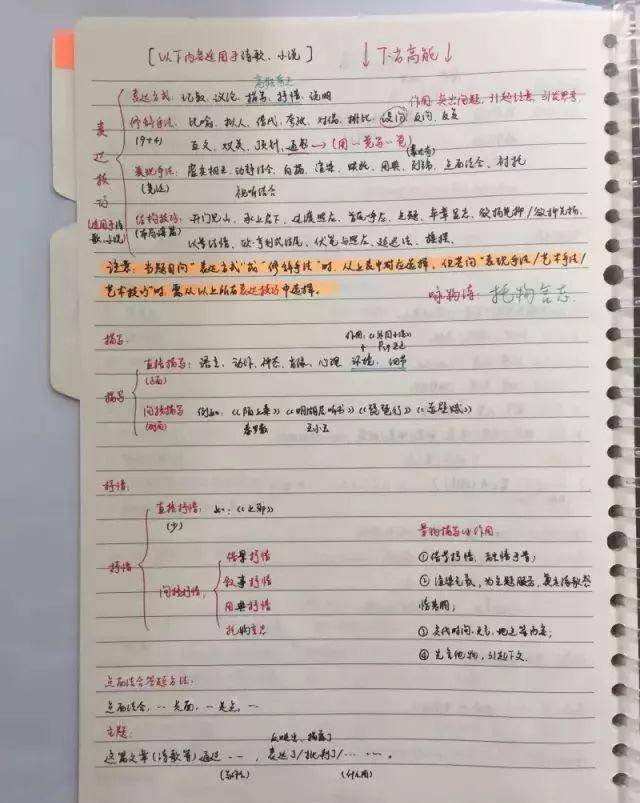 [以下内容适用于诗歌、小说] ↓下者高能↓
高频考点
表达方式：记叙、议论、描写、抒情、说明
作用：突出问题，引起注意，引发思考
修辞手法：比喻、拟人、借代、夸张、对偶、排比、设问、反问、反复
(9+4) 互文、双关、顶针、通感→(用一觉写一觉)
表达技巧
(适用于诗歌、小说)
表现手法：虚实相生、动静结合、白描、渲染、烘托、用典、点面结合、衬托
视听结合
结构技巧：开门见山、承上启下、过渡照应、首尾呼应、点题、卒章显志、欲扬先抑/欲抑先扬、
(布局谋篇) 以景结情、伏笔与照应、
注意：当题目问"表达方式"或"修辞手法"时，从上表中对应选择，但若问"表现手法/艺术手法/
艺术技巧"时，需从以上所有表达技巧中选择。
咏物诗：托物言志
描写：
描写
直接描写：语言、动作、神态、肖像、心理、环境、细节
(正面)
间接描写 例如：《陌上桑》《明湖居听书》《琵琶行》《赤壁赋》
(侧面) 秦罗敷 王小玉
抒情：
抒情
直接抒情：如：《上邪》
(少)
景物描写的作用：
间接抒情：
借景抒情 ①借景抒情，融情于景；
叙事抒情 ②渲染气氛，为主题服务，奠定诗歌感
用典抒情 情基调；
托物言志 ③交代时间、地点等内容；
④先言他物，引起下文。
点面结合答题方法：
点面结合，…是面，…是点，…
主题：
反映出、描写了
这篇文章(诗歌等)通过……，表达了/批判了/……。